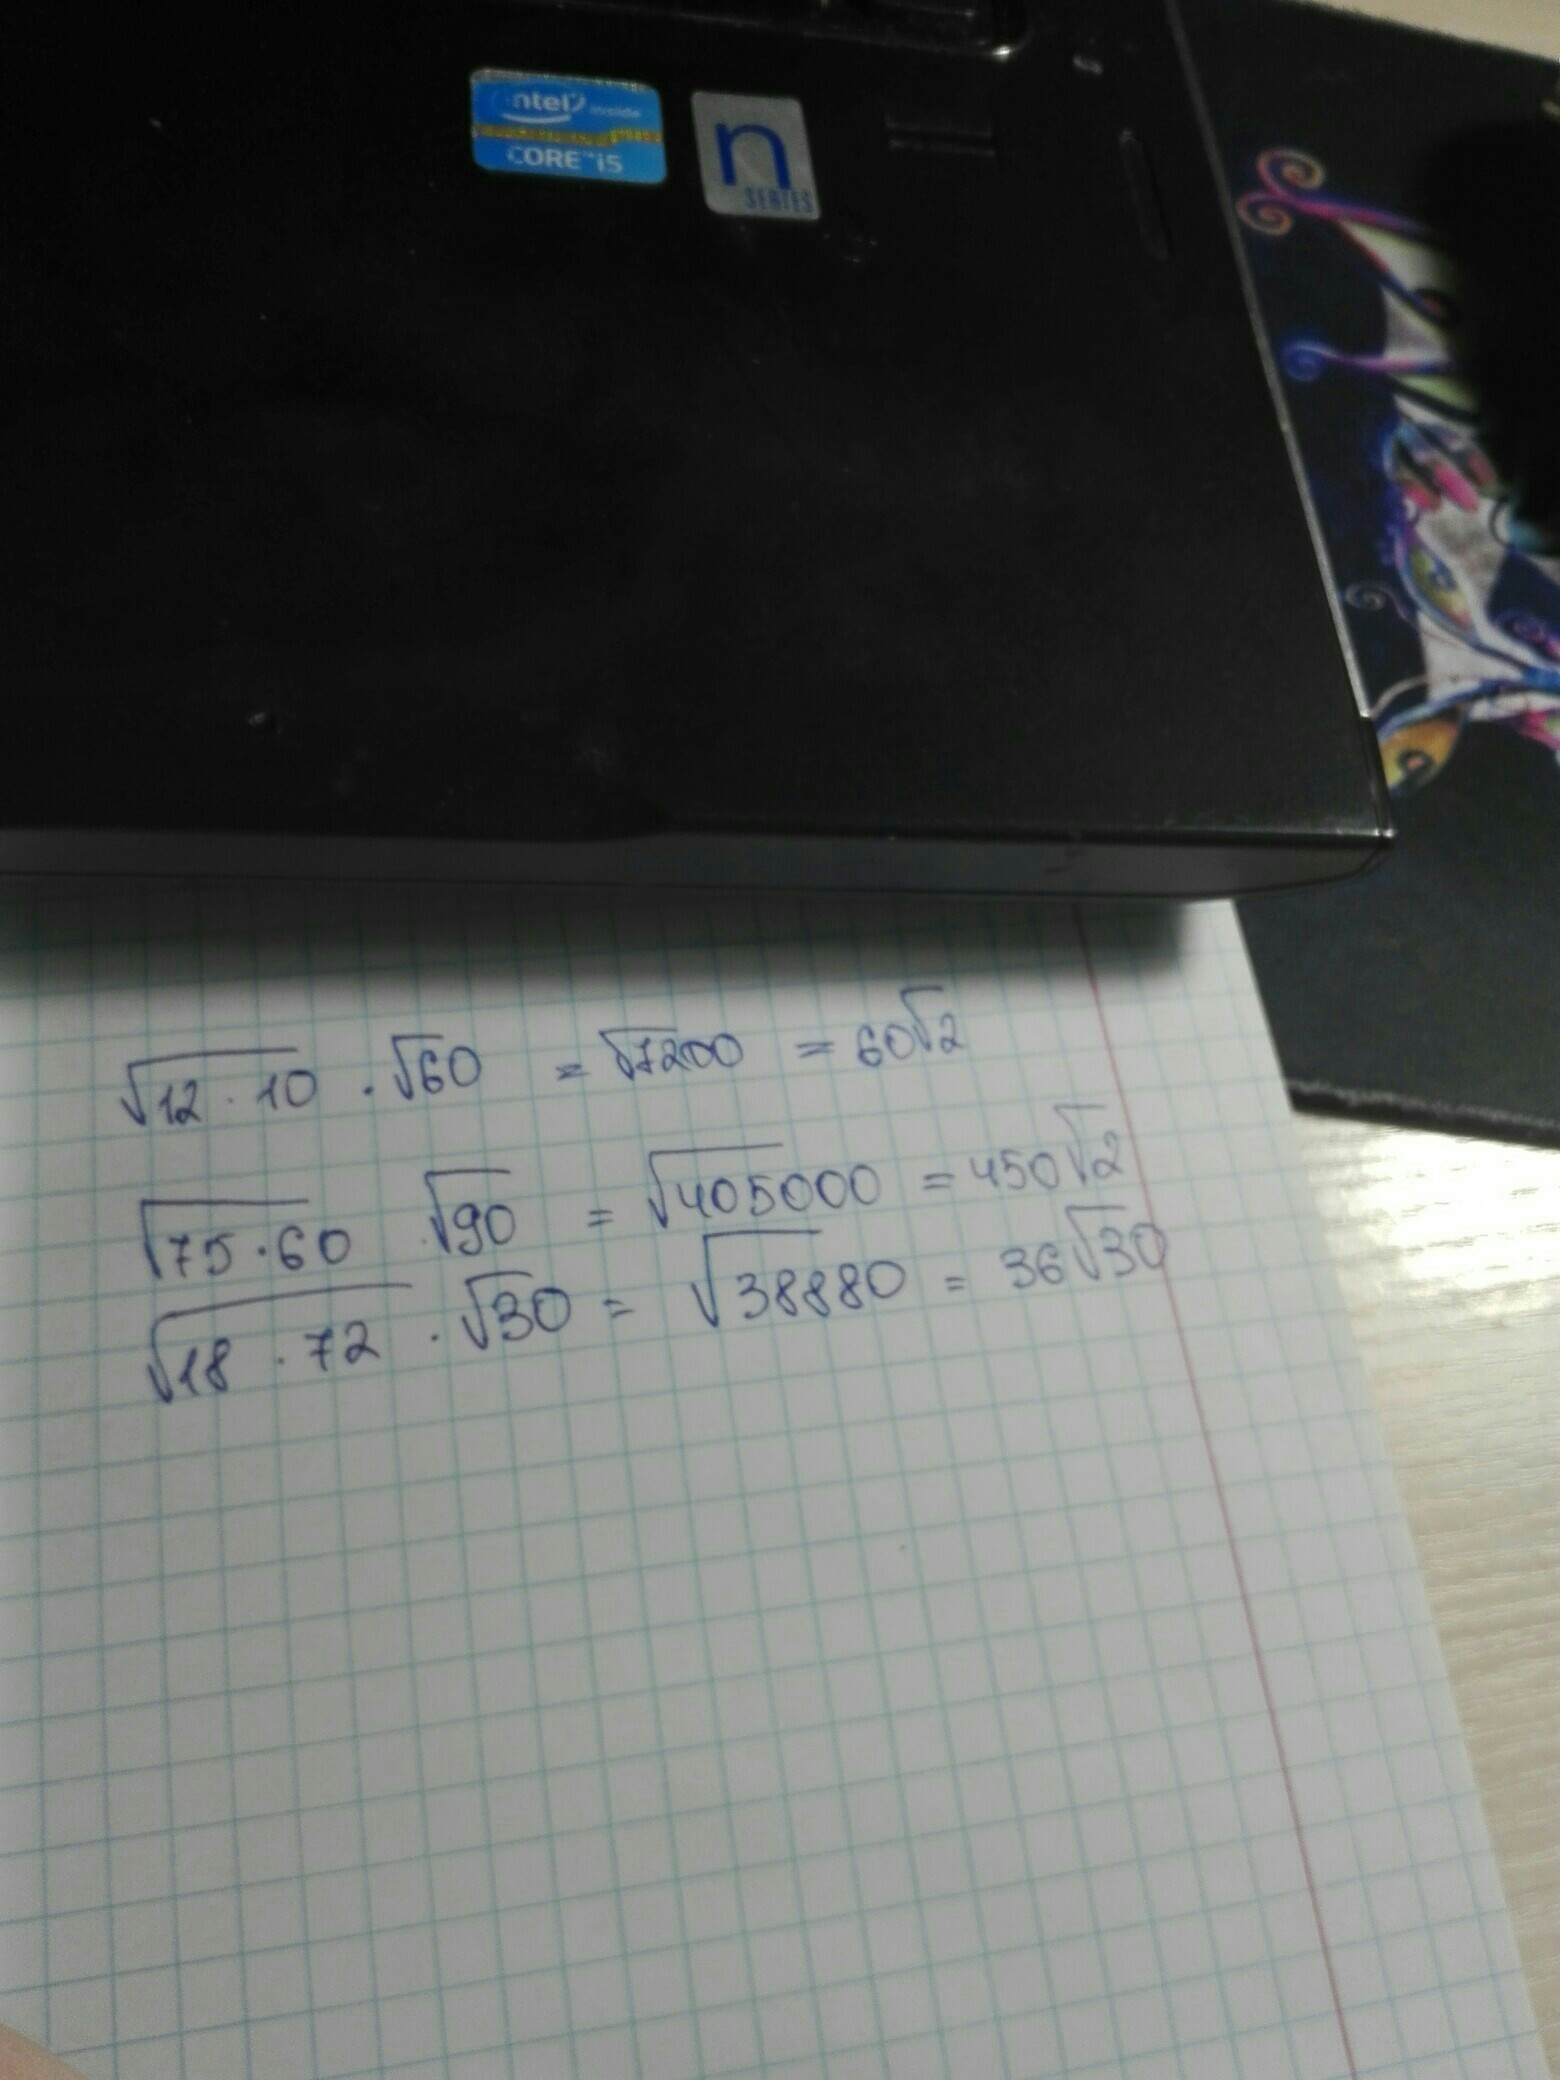 intel inside
CORE™ i5
n
SERIES
√12 · 10 · √60 = √7200 = 60√2
√75 · 60 · √90 = √405000 = 450√2
√18 · 72 · √30 = √38880 = 36√30